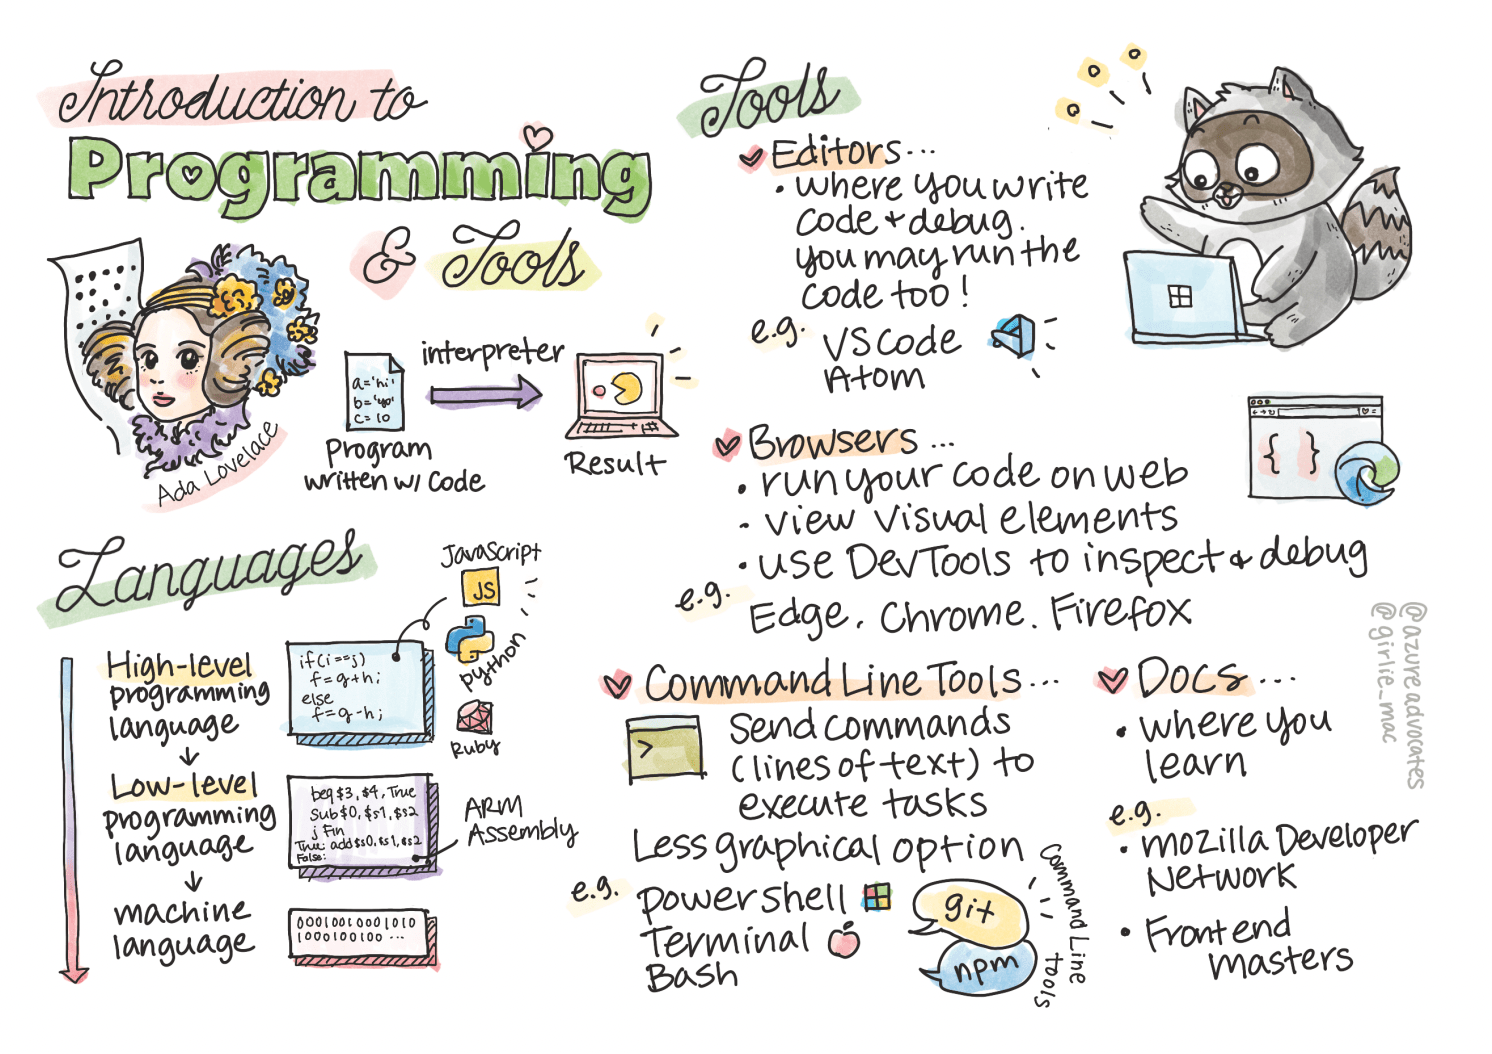 Introduction to
Programming
& Tools
Ada Lovelace
a='hi'
b='yo'
c=10
Program
written w/ Code
interpreter
Result
Languages
High-level
programming
language
if(i==j)
f=g+h;
else
f=g-h;
JavaScript
JS
python
Ruby
Low-level
programming
language
beq $3, $4, True
Sub $0, $s1, $s2
j Fin
True: add $s0, $s1, $s2
False:
ARM
Assembly
machine
language
0001001000 1010
1000100100 ...
Tools
Editors...
• where you write
code + debug.
you may run the
code too!
e.g. VS Code
Atom
Browsers ...
• run your code on web
• view visual elements
• use DevTools to inspect & debug
e.g. Edge, Chrome, Firefox
{ }
Command Line Tools ...
>
Send commands
(lines of text) to
execute tasks
Less graphical option
e.g. powershell
Terminal
Bash
git
npm
Command Line
tools
Docs ...
• where you
learn
e.g.
• mozilla Developer
Network
• Frontend
masters
@azureadvocates
@girlie_mac